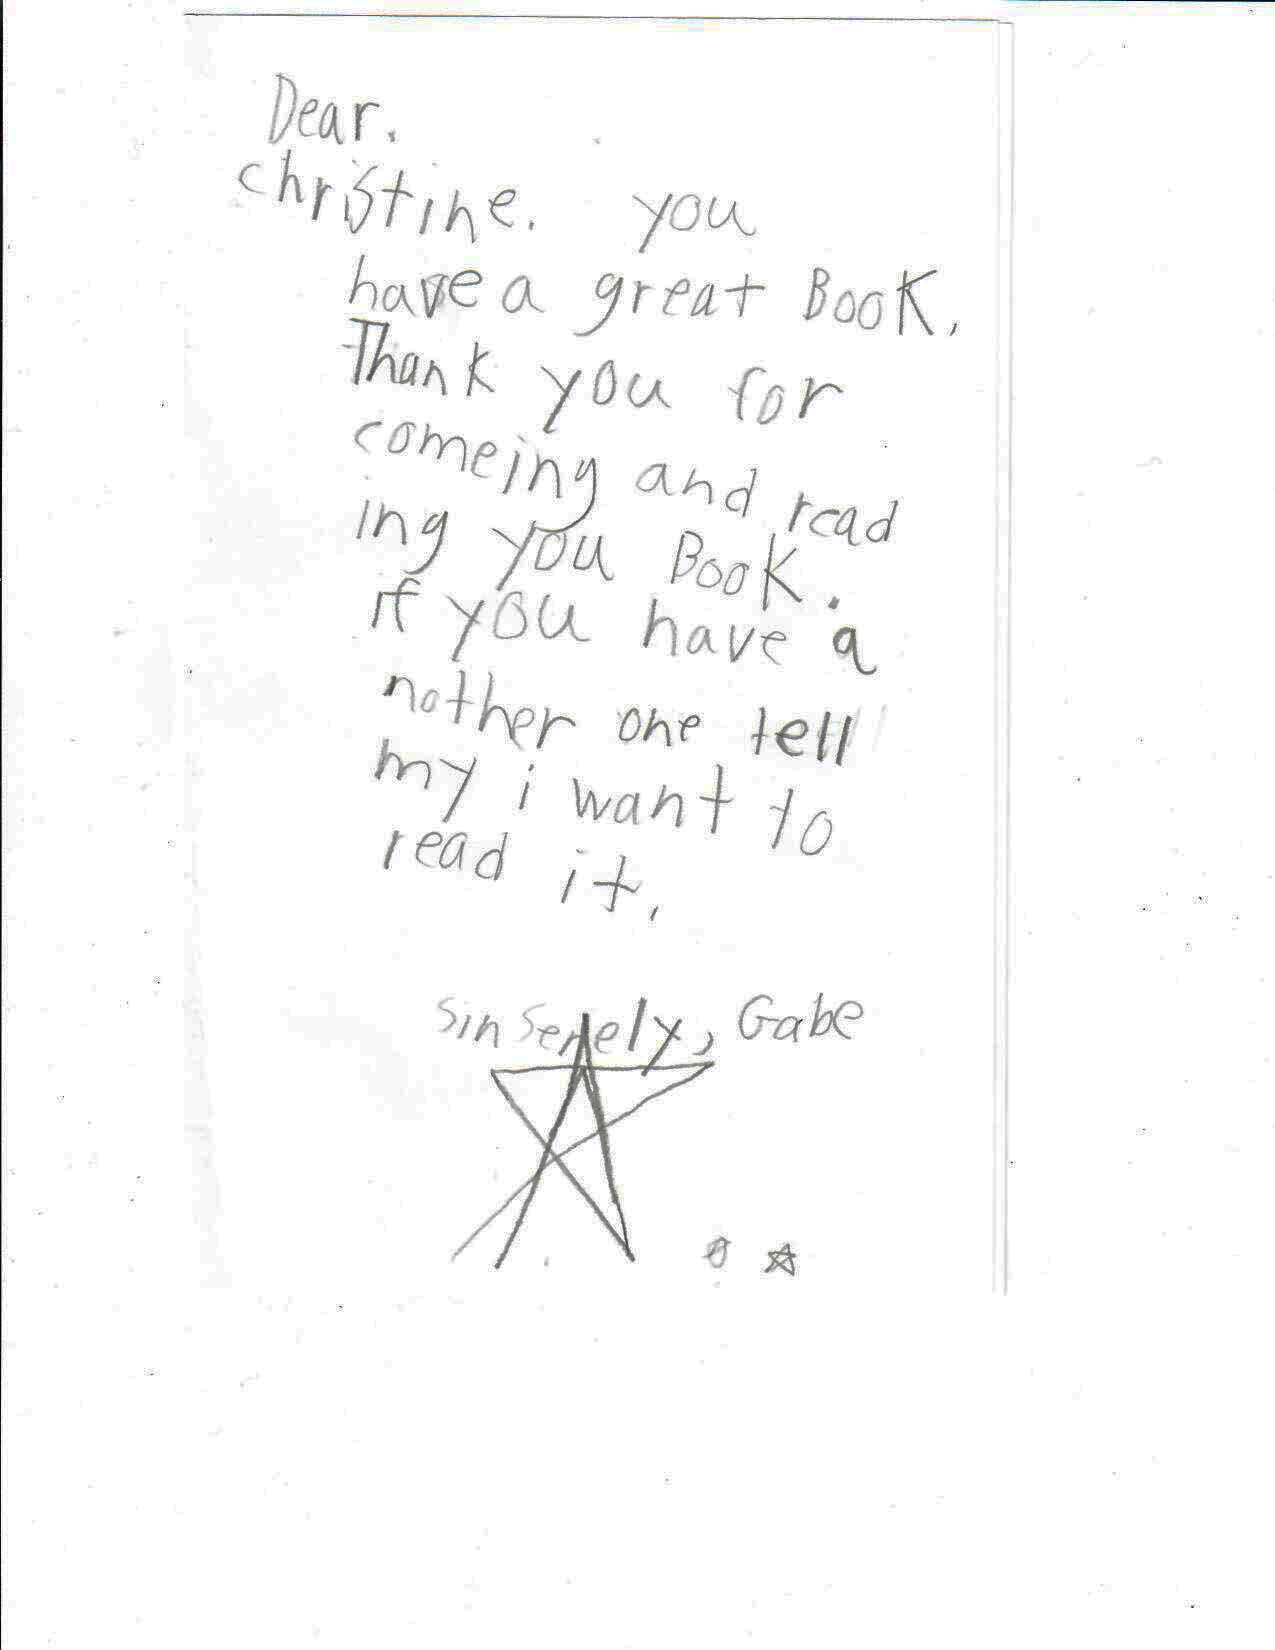 Dear.
christine. you
have a great Book.
Thank you for
comeing and read
ing you Book.
if you have a
nother one tell
my i want to
read it.
sinserely, Gabe